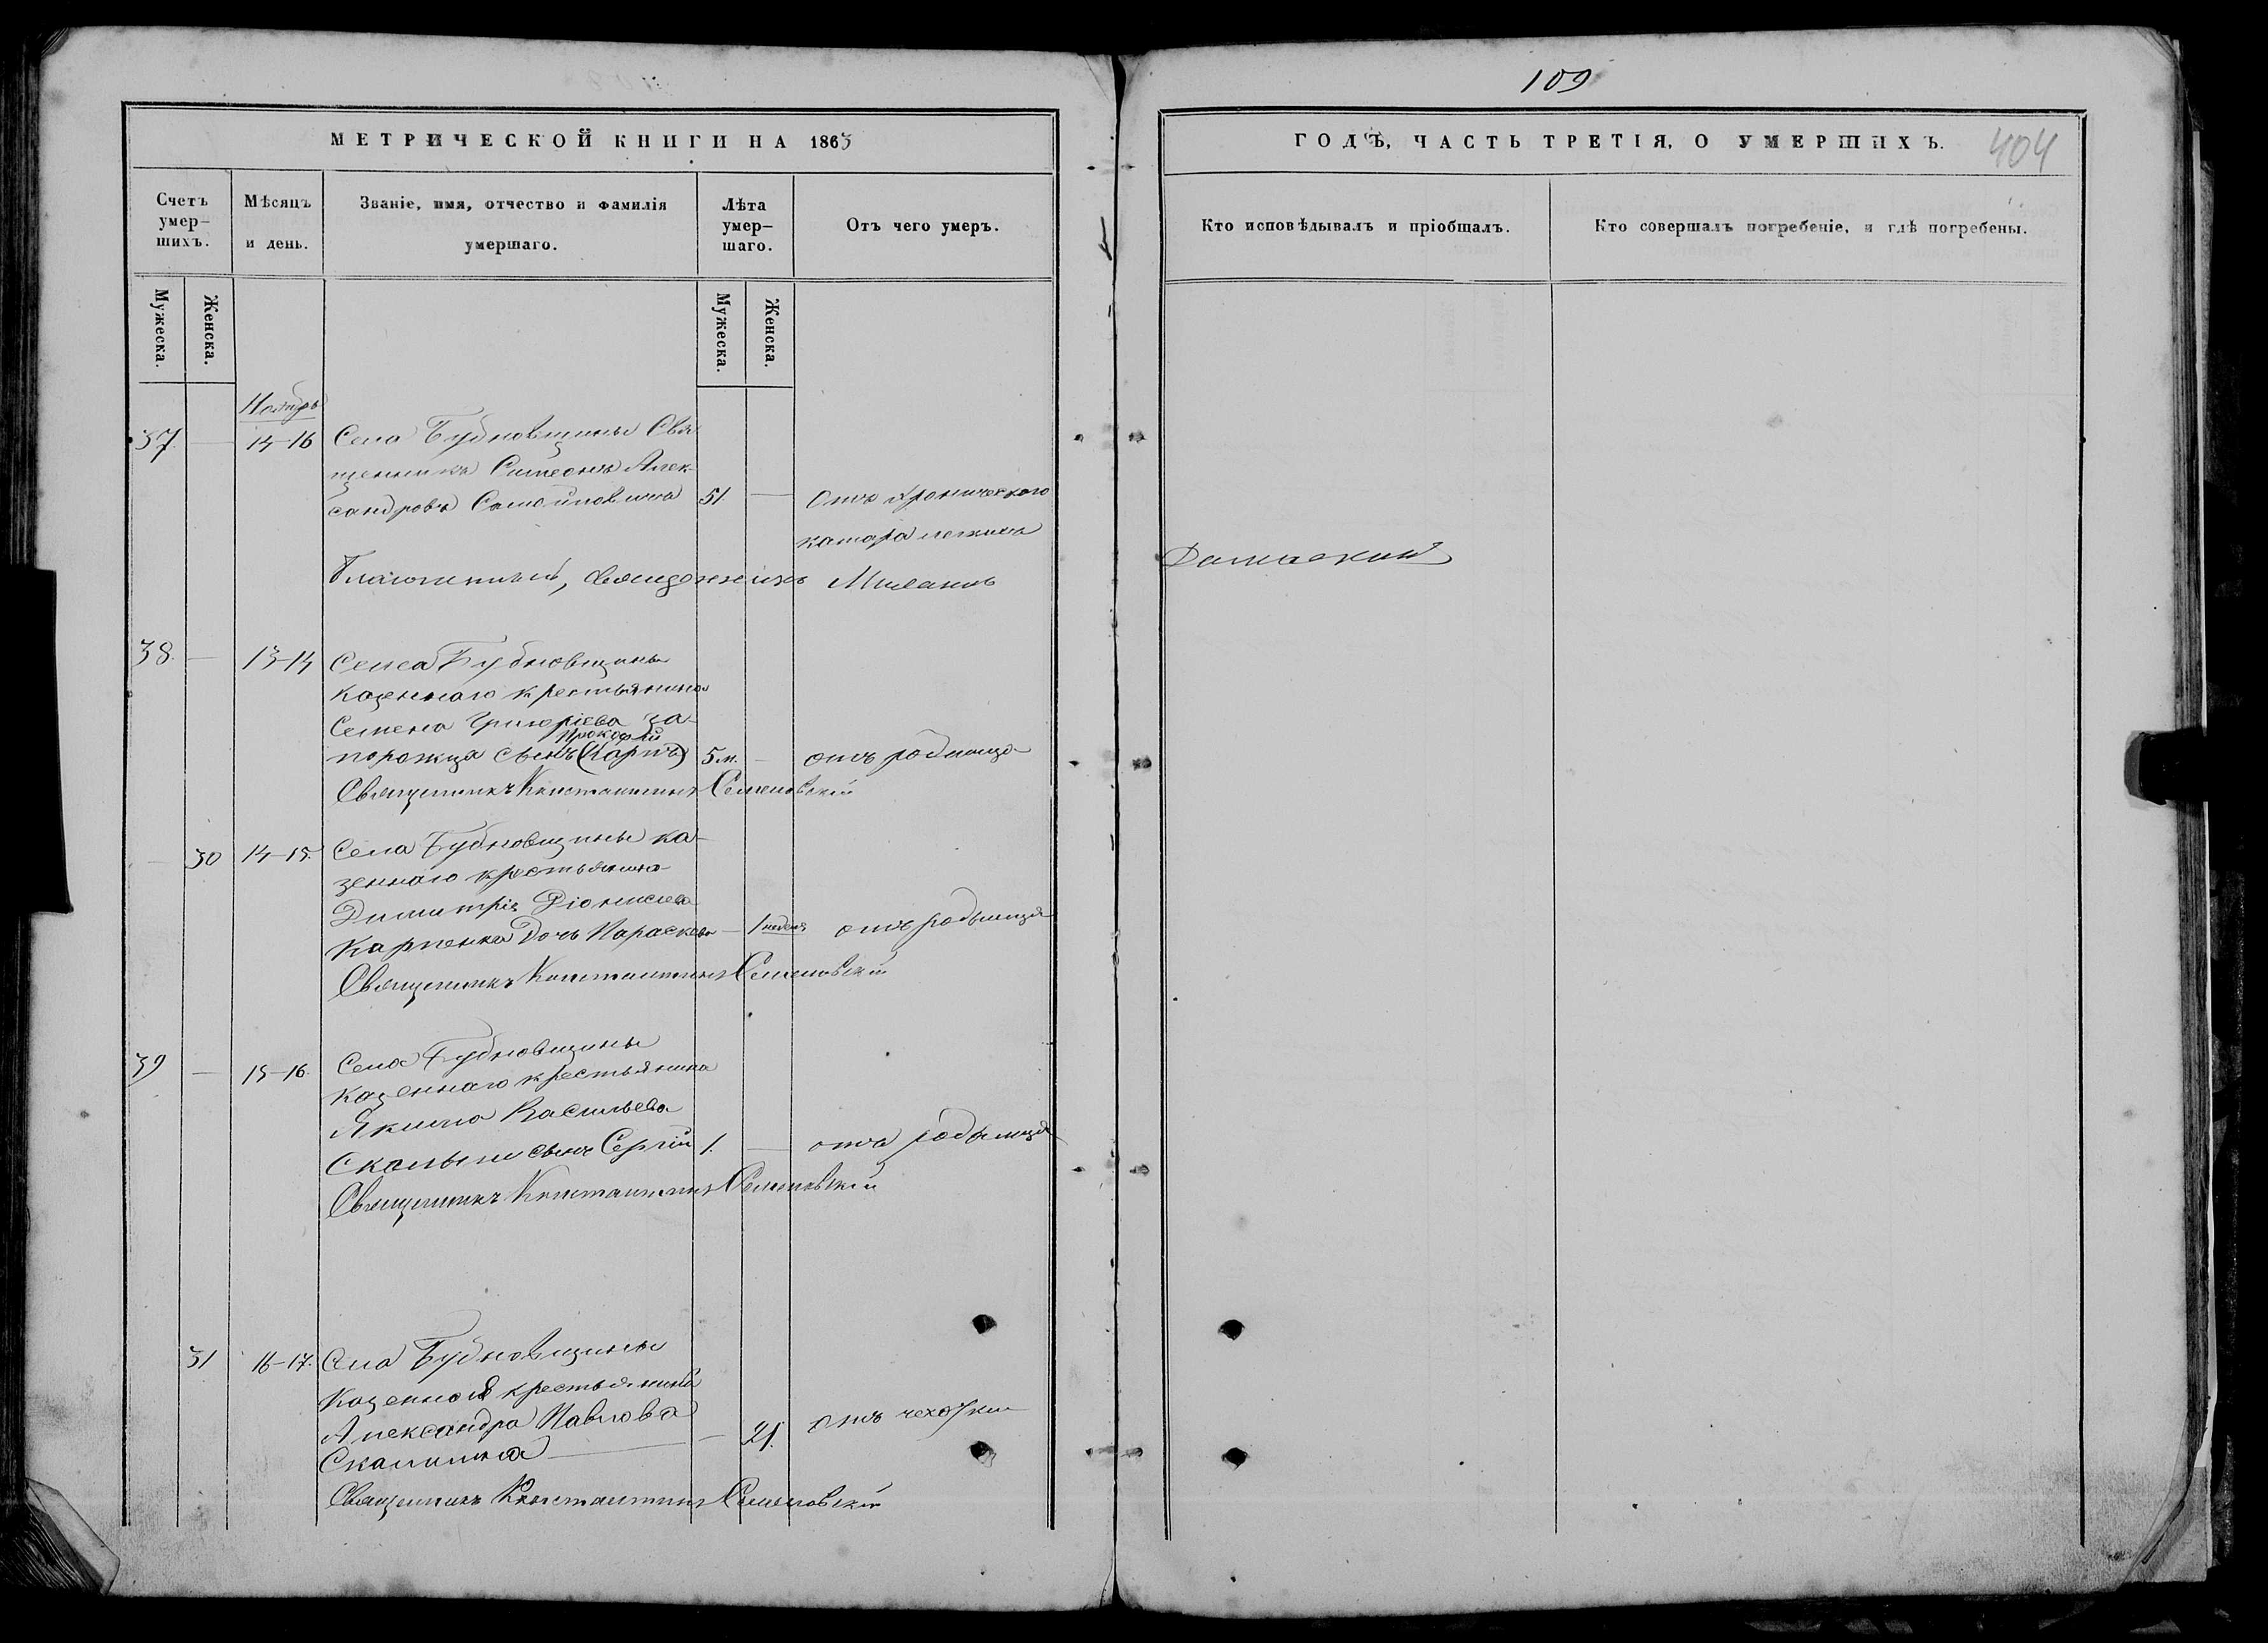 109
МЕТРИЧЕСКОЙ КНИГИ НА 1863
ГОДЪ, ЧАСТЬ ТРЕТІЯ, О УМЕРШИХЪ.
404
Счетъ умер-шихъ.
Мѣсяцъ и день.
Званіе, имя, отчество и фамилія умершаго.
Лѣта умер-шаго.
Отъ чего умеръ.
Кто исповѣдывалъ и пріобщалъ.
Кто совершалъ погребеніе, и гдѣ погребены.
Мужеска.
Женска.
Мужеска.
Женска.
Ноябрь
37. — 14-16 Села Бубновщины Свя-
щенникъ Симеонъ Алек-
сандровъ Самойловича 51. — Отъ хроническаго
катара легкихъ
Благочинный, священникъ
38. — 13-14 Села Бубновщины
казеннаго крестьянина
Семена Григоріева За-
Прокофій
порожца сынъ (Карпъ) 5 м. — отъ родимца
Священникъ Константинъ Семеновскій
— 30 14-15. Села Бубновщины ка-
зеннаго крестьянина
Димитрія Діонисіева
Карпенка дочь Параскева — 1 неделя отъ родимца
Священникъ Константинъ Семеновскій
39 — 15-16. Села Бубновщины
казеннаго крестьянина
Якима Васильева
сынъ Сергій 1. — отъ родимца
Священникъ Константинъ Семеновскій
31 16-17. Села Бубновщины
казенная крестьянина
Александра Павлова
— 21. отъ чехотки
Священникъ Константинъ Семеновскій